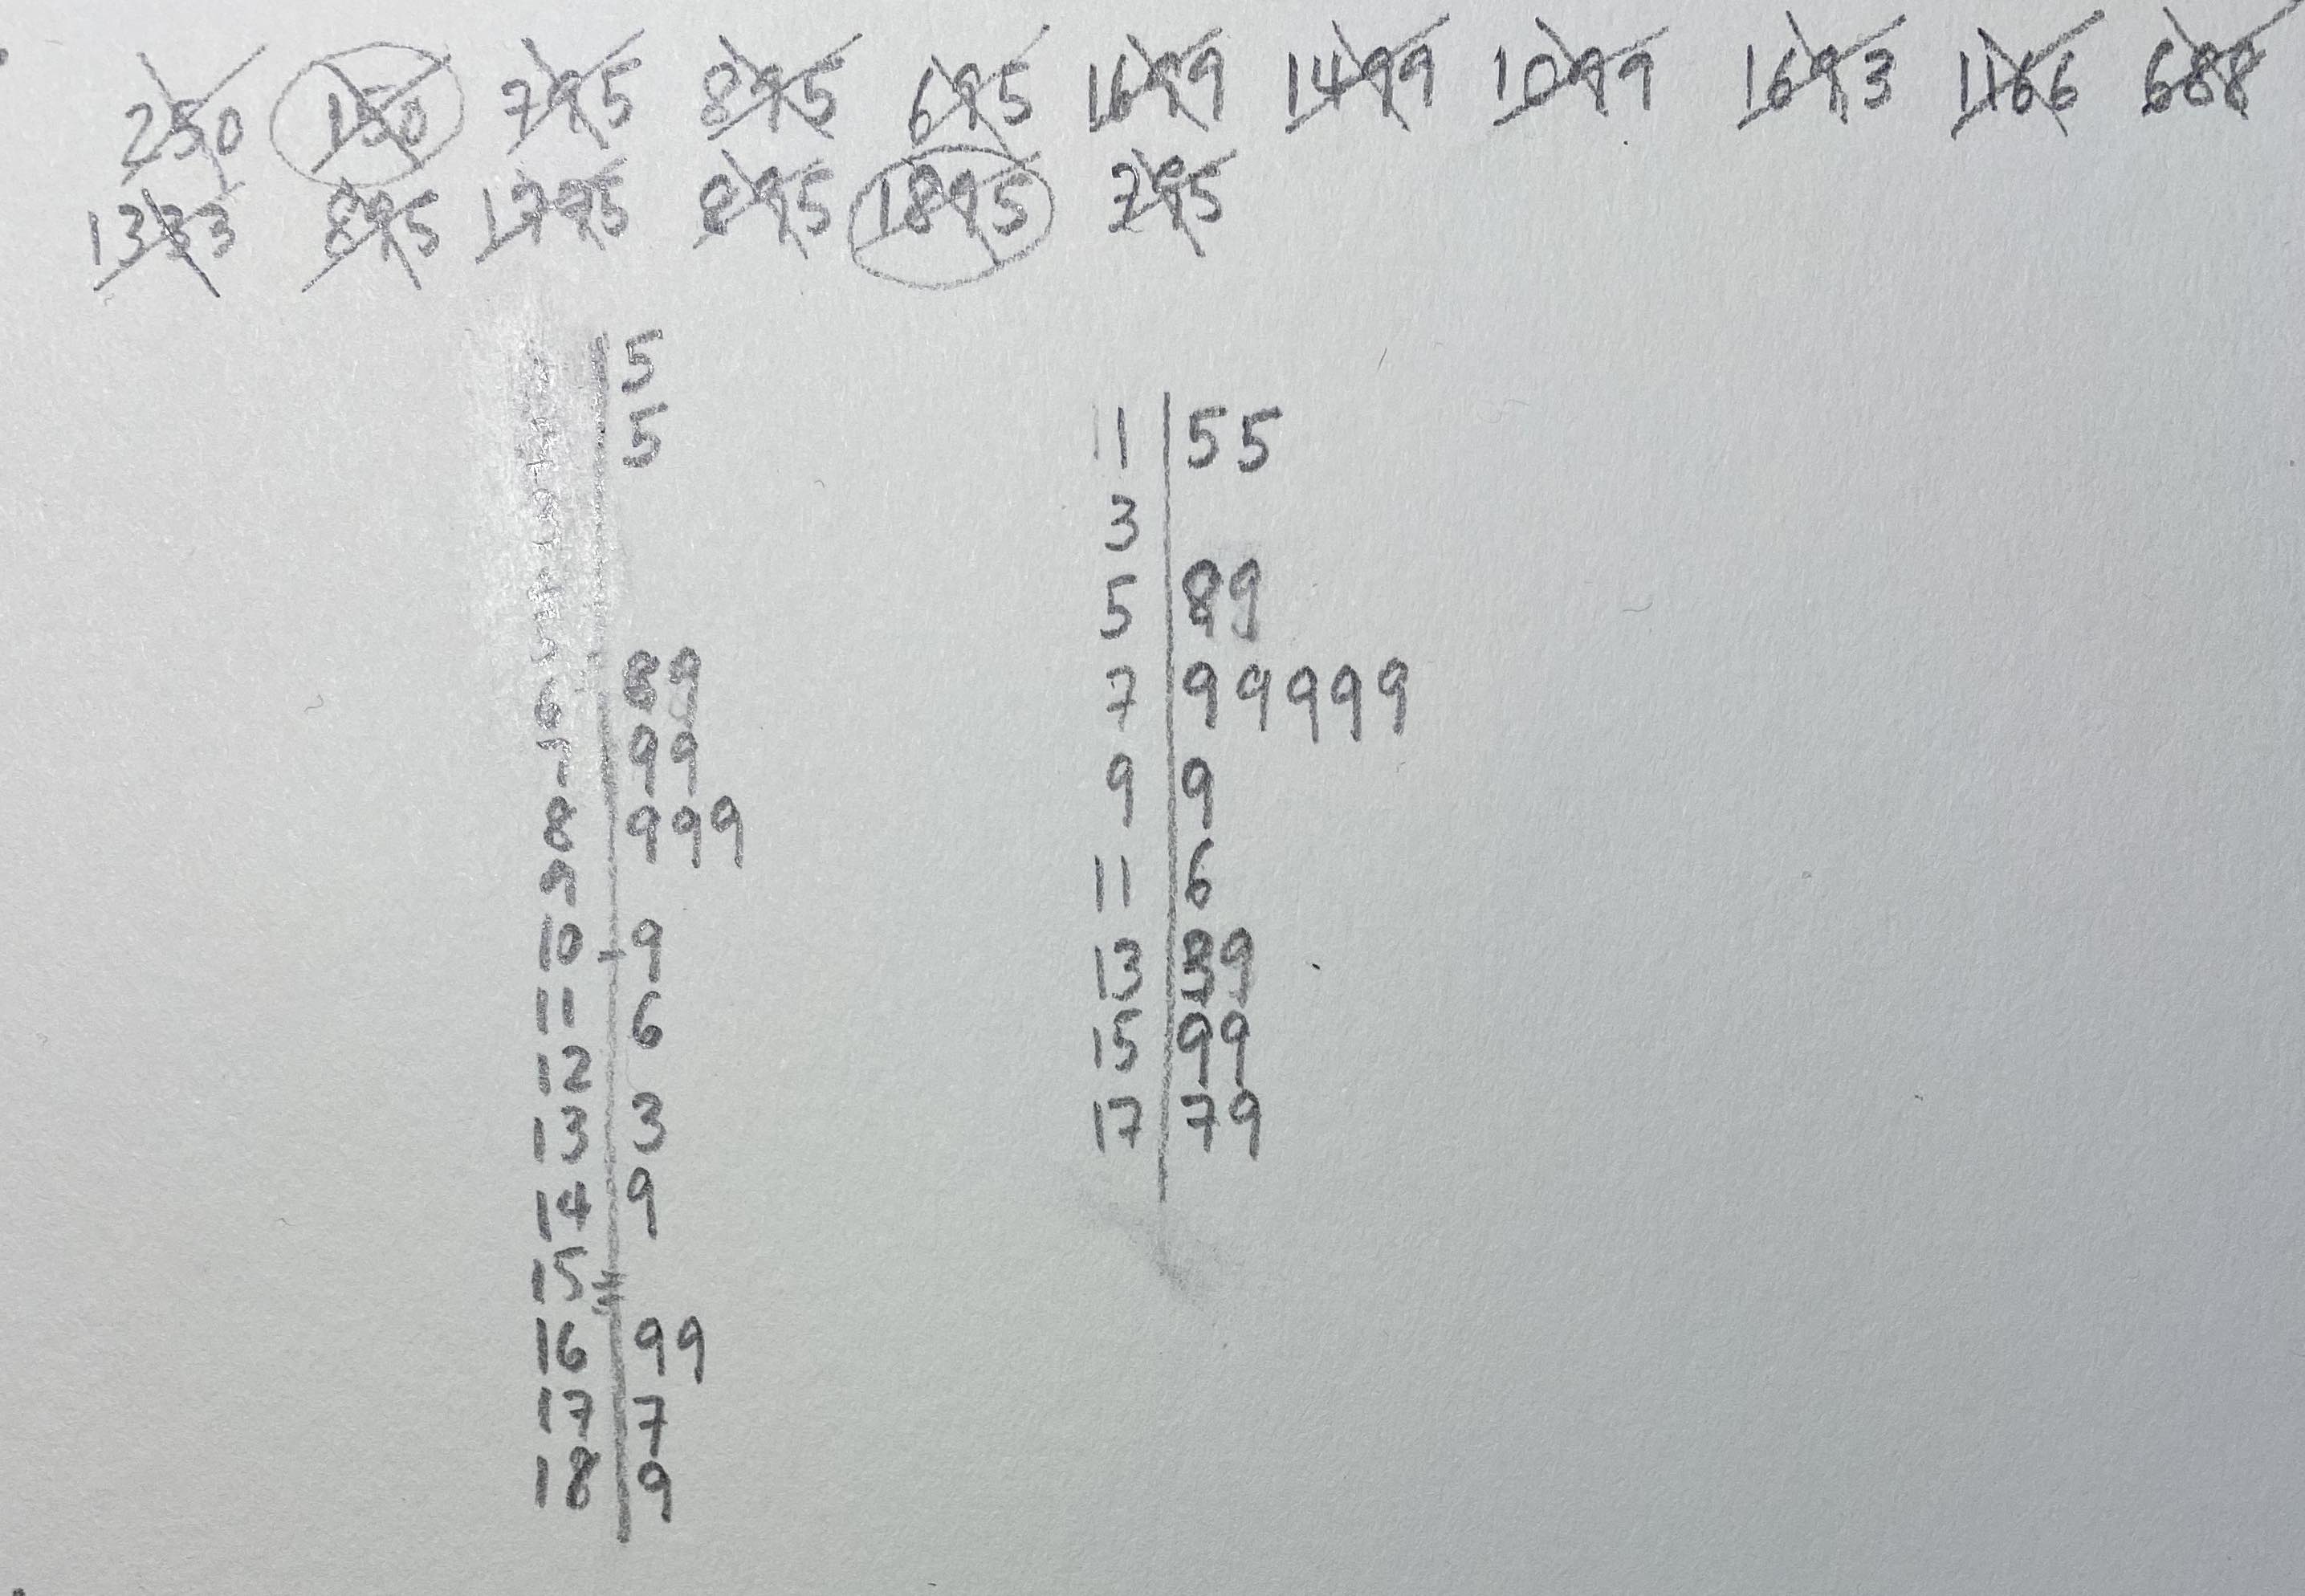 250 150 795 895 695 1699 1499 1099 1693 1166 688
1333 895 1795 895 1895 795
| 5
| 5
6 | 89
7 | 99
8 | 999
9 |
10 | 9
11 | 6
12 |
13 | 3
14 | 9
15 |
16 | 99
17 | 7
18 | 9
1 | 55
3 |
5 | 89
7 | 99999
9 | 9
11 | 6
13 | 39
15 | 99
17 | 79